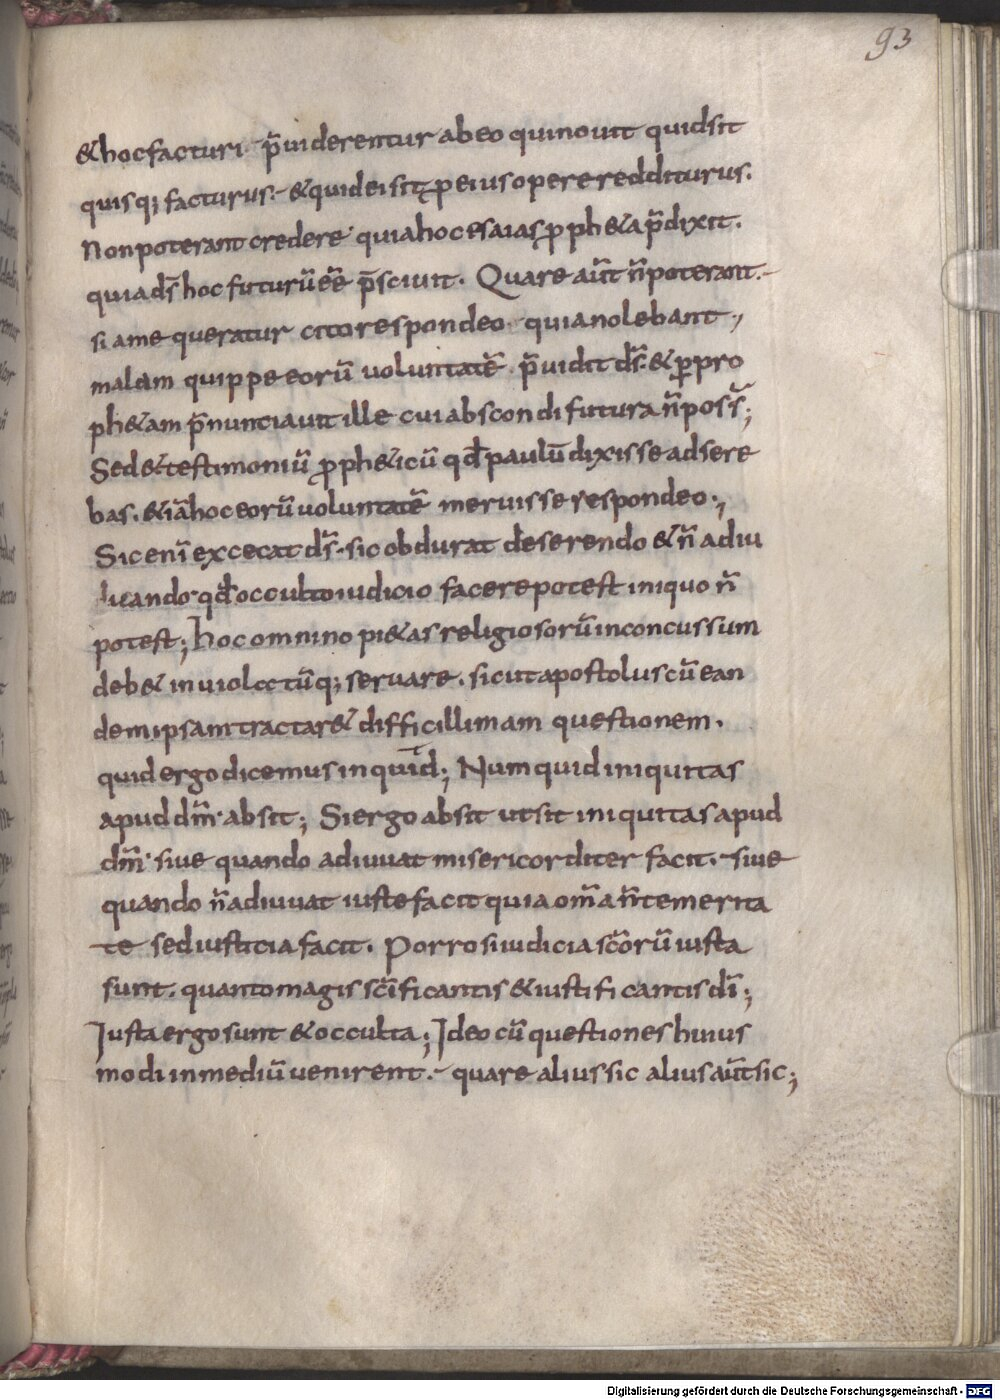 93
& hoc facturi. p̄uiderentur ab eo qui nouit quid sit
quisq; facturus. & quid ei sit ꝓ eius opere redditurus.
Non poterant credere quia hoc esaias ꝓph&a p̄dixit.
quia d̄s hoc futurū eē p̄sciuit. Quare aūt n̄ poterant.
si a me queratur cito respondeo quia nolebant;
malam quippe eorū uoluntatē p̄uidit d̄s. & ꝑ pro
ph&am p̄nunciauit ille cui abscondi futura n̄ poss̄;
Sed & testimoniū ꝓph&icū qđ paulū dixisse adsere
bas. & iā hoc eorū uoluntatē meruisse respondeo;
Sic enī excecat d̄s. sic obdurat deserendo & n̄ adiu
uando. qđ occulto iudicio facere potest iniquo n̄
potest; hoc omnino pi&as religiosorū inconcussum
deb& inuiolatūq; seruare. sicut apostolus cū ean
dem ipsam tractar& difficillimam questionem.
quid ergo dicemus inquid; Numquid iniquitas
apud dm̄. absit; Si ergo absit ut sit iniquitas apud
dm̄. siue quando adiuuat misericorditer facit. siue
quando n̄ adiuuat iuste facit quia om̄a n̄ temerita
te sed iusticia facit. Porro si iudicia sc̄orū iusta
sunt. quanto magis sc̄ificantis & iustificantis dī;
Iusta ergo sunt & occulta; Ideo cū questiones huius
modi in mediū uenirent. quare alius sic alius aūt sic;
Digitalisierung gefördert durch die Deutsche Forschungsgemeinschaft - DFG